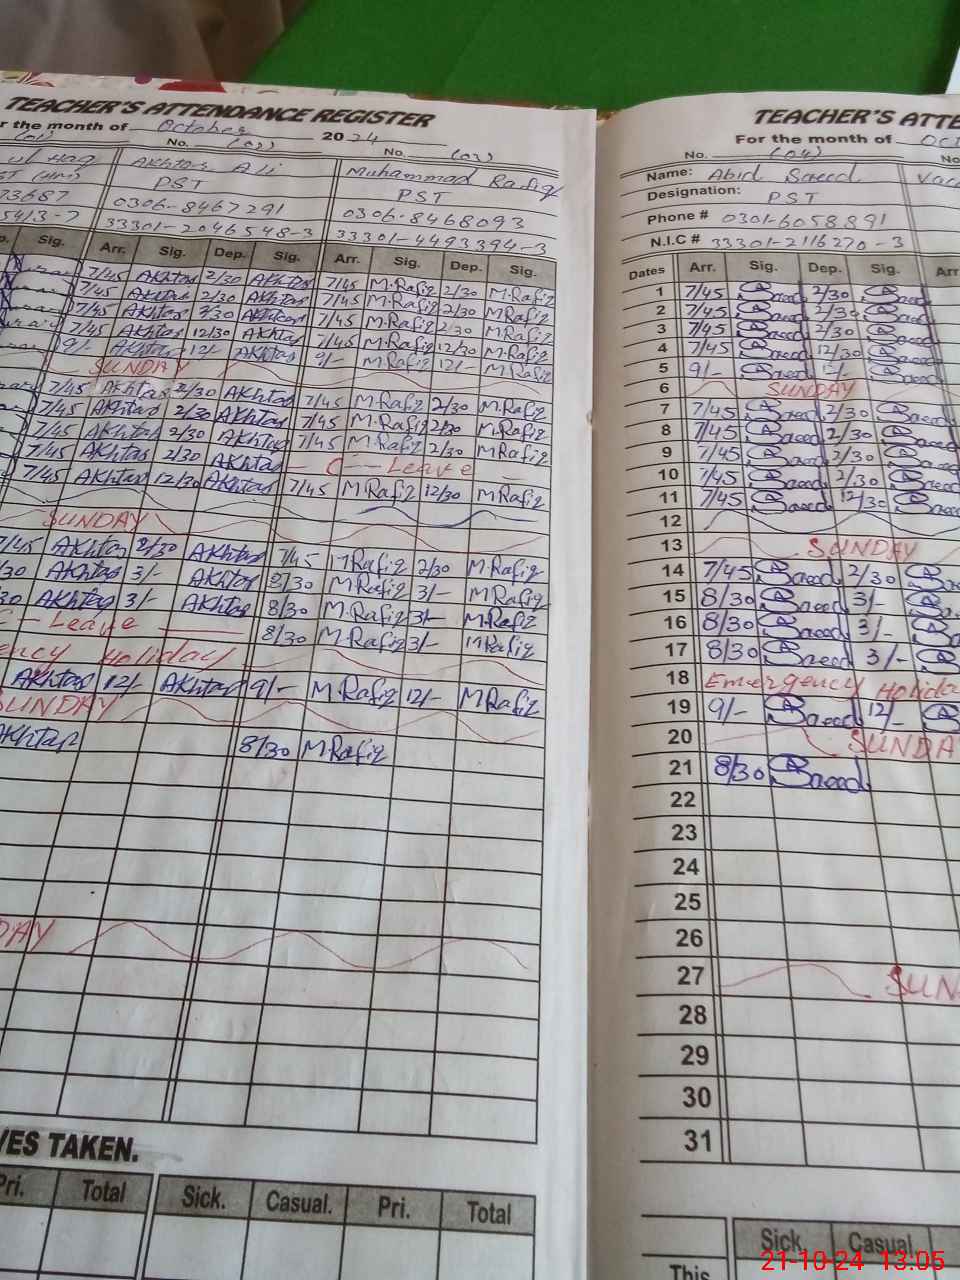 TEACHER'S ATTENDANCE REGISTER
r the month of October 2024
No. (02) No. (03)
ul Haq Akhtar Ali Muhammad Rafiq
PST PST
73687 0306-8467291 0306-8468093
5413-7 33301-2046548-3 33301-4493394-3
Sig. Arr. Sig. Dep. Sig. Arr. Sig. Dep. Sig.
7/45 Akhtar 2/30 Akhtar 7/45 M.Rafiq 2/30 M.Rafiq
7/45 Akhtar 2/30 Akhtar 7/45 M.Rafiq 2/30 M.Rafiq
7/45 Akhtar 2/30 Akhtar 7/45 M.Rafiq 2/30 M.Rafiq
7/45 Akhtar 12/30 Akhtar 7/45 M.Rafiq 12/30 M.Rafiq
9/- Akhtar 12/- Akhtar 9/- M.Rafiq 12/- M.Rafiq
SUNDAY
7/45 Akhtar 2/30 Akhtar 7/45 M.Rafiq 2/30 M.Rafiq
7/45 Akhtar 2/30 Akhtar 7/45 M.Rafiq 2/30 M.Rafiq
7/45 Akhtar 2/30 Akhtar 7/45 M.Rafiq 2/30 M.Rafiq
7/45 Akhtar 2/30 Akhtar - C - Leave
7/45 Akhtar 12/30 Akhtar 7/45 M.Rafiq 12/30 M.Rafiq
SUNDAY
7/45 Akhtar 2/30 Akhtar 7/45 M.Rafiq 2/30 M.Rafiq
/30 Akhtar 3/- Akhtar 8/30 M.Rafiq 3/- M.Rafiq
30 Akhtar 3/- Akhtar 8/30 M.Rafiq 3/- M.Rafiq
C - Leave 8/30 M.Rafiq 3/- M.Rafiq
ency Holiday
Akhtar 12/- Akhtar 9/- M.Rafiq 12/- M.Rafiq
SUNDAY
Akhtar 8/30 M.Rafiq
DAY
VES TAKEN.
Pri. Total Sick. Casual. Pri. Total
TEACHER'S ATTE
For the month of OCT
No. (04) No
Name: Abid Saeed Vac
Designation: PST
Phone # 0301-6058891
N.I.C # 33301-2116270-3
Dates Arr. Sig. Dep. Sig. Arr
1 7/45 Saeed 2/30 Saeed
2 7/45 Saeed 2/30 Saeed
3 7/45 Saeed 2/30 Saeed
4 7/45 Saeed 12/30 Saeed
5 9/- Saeed 12/- Saeed
6 SUNDAY
7 7/45 Saeed 2/30 Saeed
8 7/45 Saeed 2/30 Saeed
9 7/45 Saeed 2/30 Saeed
10 7/45 Saeed 2/30 Saeed
11 7/45 Saeed 12/30 Saeed
12
13 SUNDAY
14 7/45 Saeed 2/30
15 8/30 Saeed 3/-
16 8/30 Saeed 3/-
17 8/30 Saeed 3/-
18 Emergency Holida
19 9/- Saeed 12/-
20 SUNDA
21 8/30 Saeed
22
23
24
25
26
27 SUN
28
29
30
31
Sick. Casual
This
21-10-24 13:05